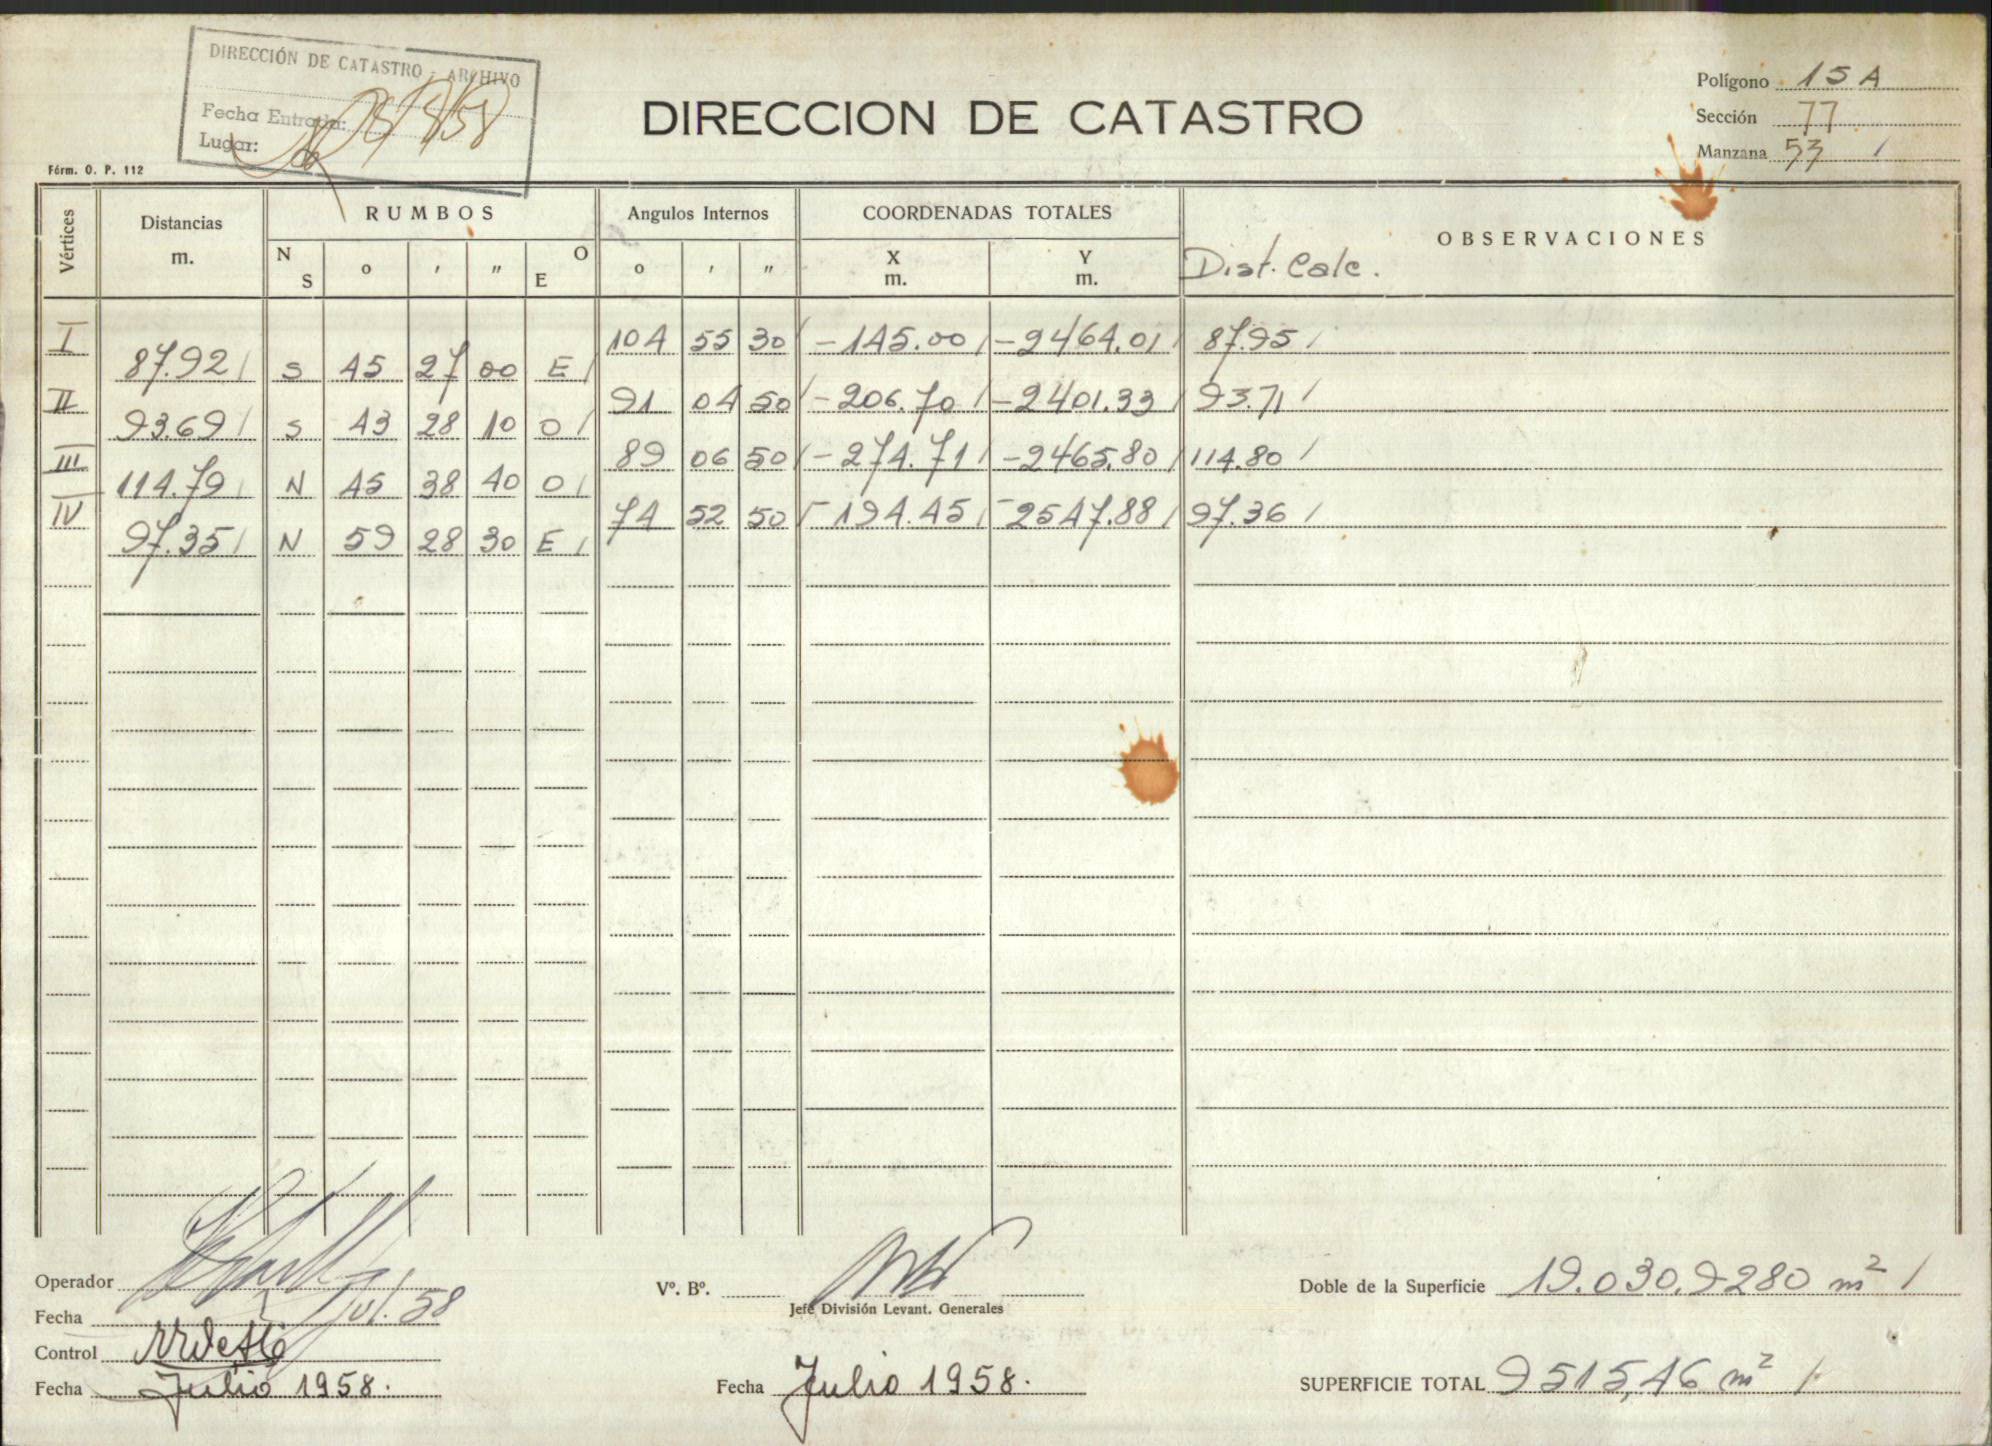 DIRECCIÓN DE CATASTRO - ARCHIVO
Fecha Entrada:
Lugar:
Fórm. O. P. 112
DIRECCION DE CATASTRO
Polígono 15 A
Sección 77
Manzana 53 /
Vértices Distancias m. RUMBOS N S o ' " O E Angulos Internos o ' " COORDENADAS TOTALES X m. Y m. OBSERVACIONES
Dist. Calc.
I 104 55 30 / -145.00 / -2464.01 / 87.95 /
87.92 / S 45 27 00 E /
II 91 04 50 / -206.70 / -2401.33 / 93.71 /
93.69 / S 43 28 10 O /
III 89 06 50 / -274.71 / -2465.80 / 114.80 /
114.79 / N 45 38 40 O /
IV 74 52 50 / -194.45 / -2547.88 / 97.36 /
97.35 / N 59 28 30 E /
Operador
Fecha Jul. 58
Control
Fecha Julio 1958.
Vº. Bº.
Jefe División Levant. Generales
Fecha Julio 1958.
Doble de la Superficie 19.030,9280 m² /
SUPERFICIE TOTAL 9515,46 m² /